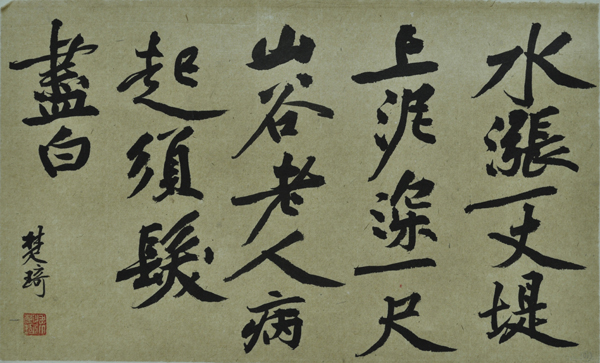 水漲一丈堤
上泥深一尺
山谷老人病
起須髮
盡白
楚琦